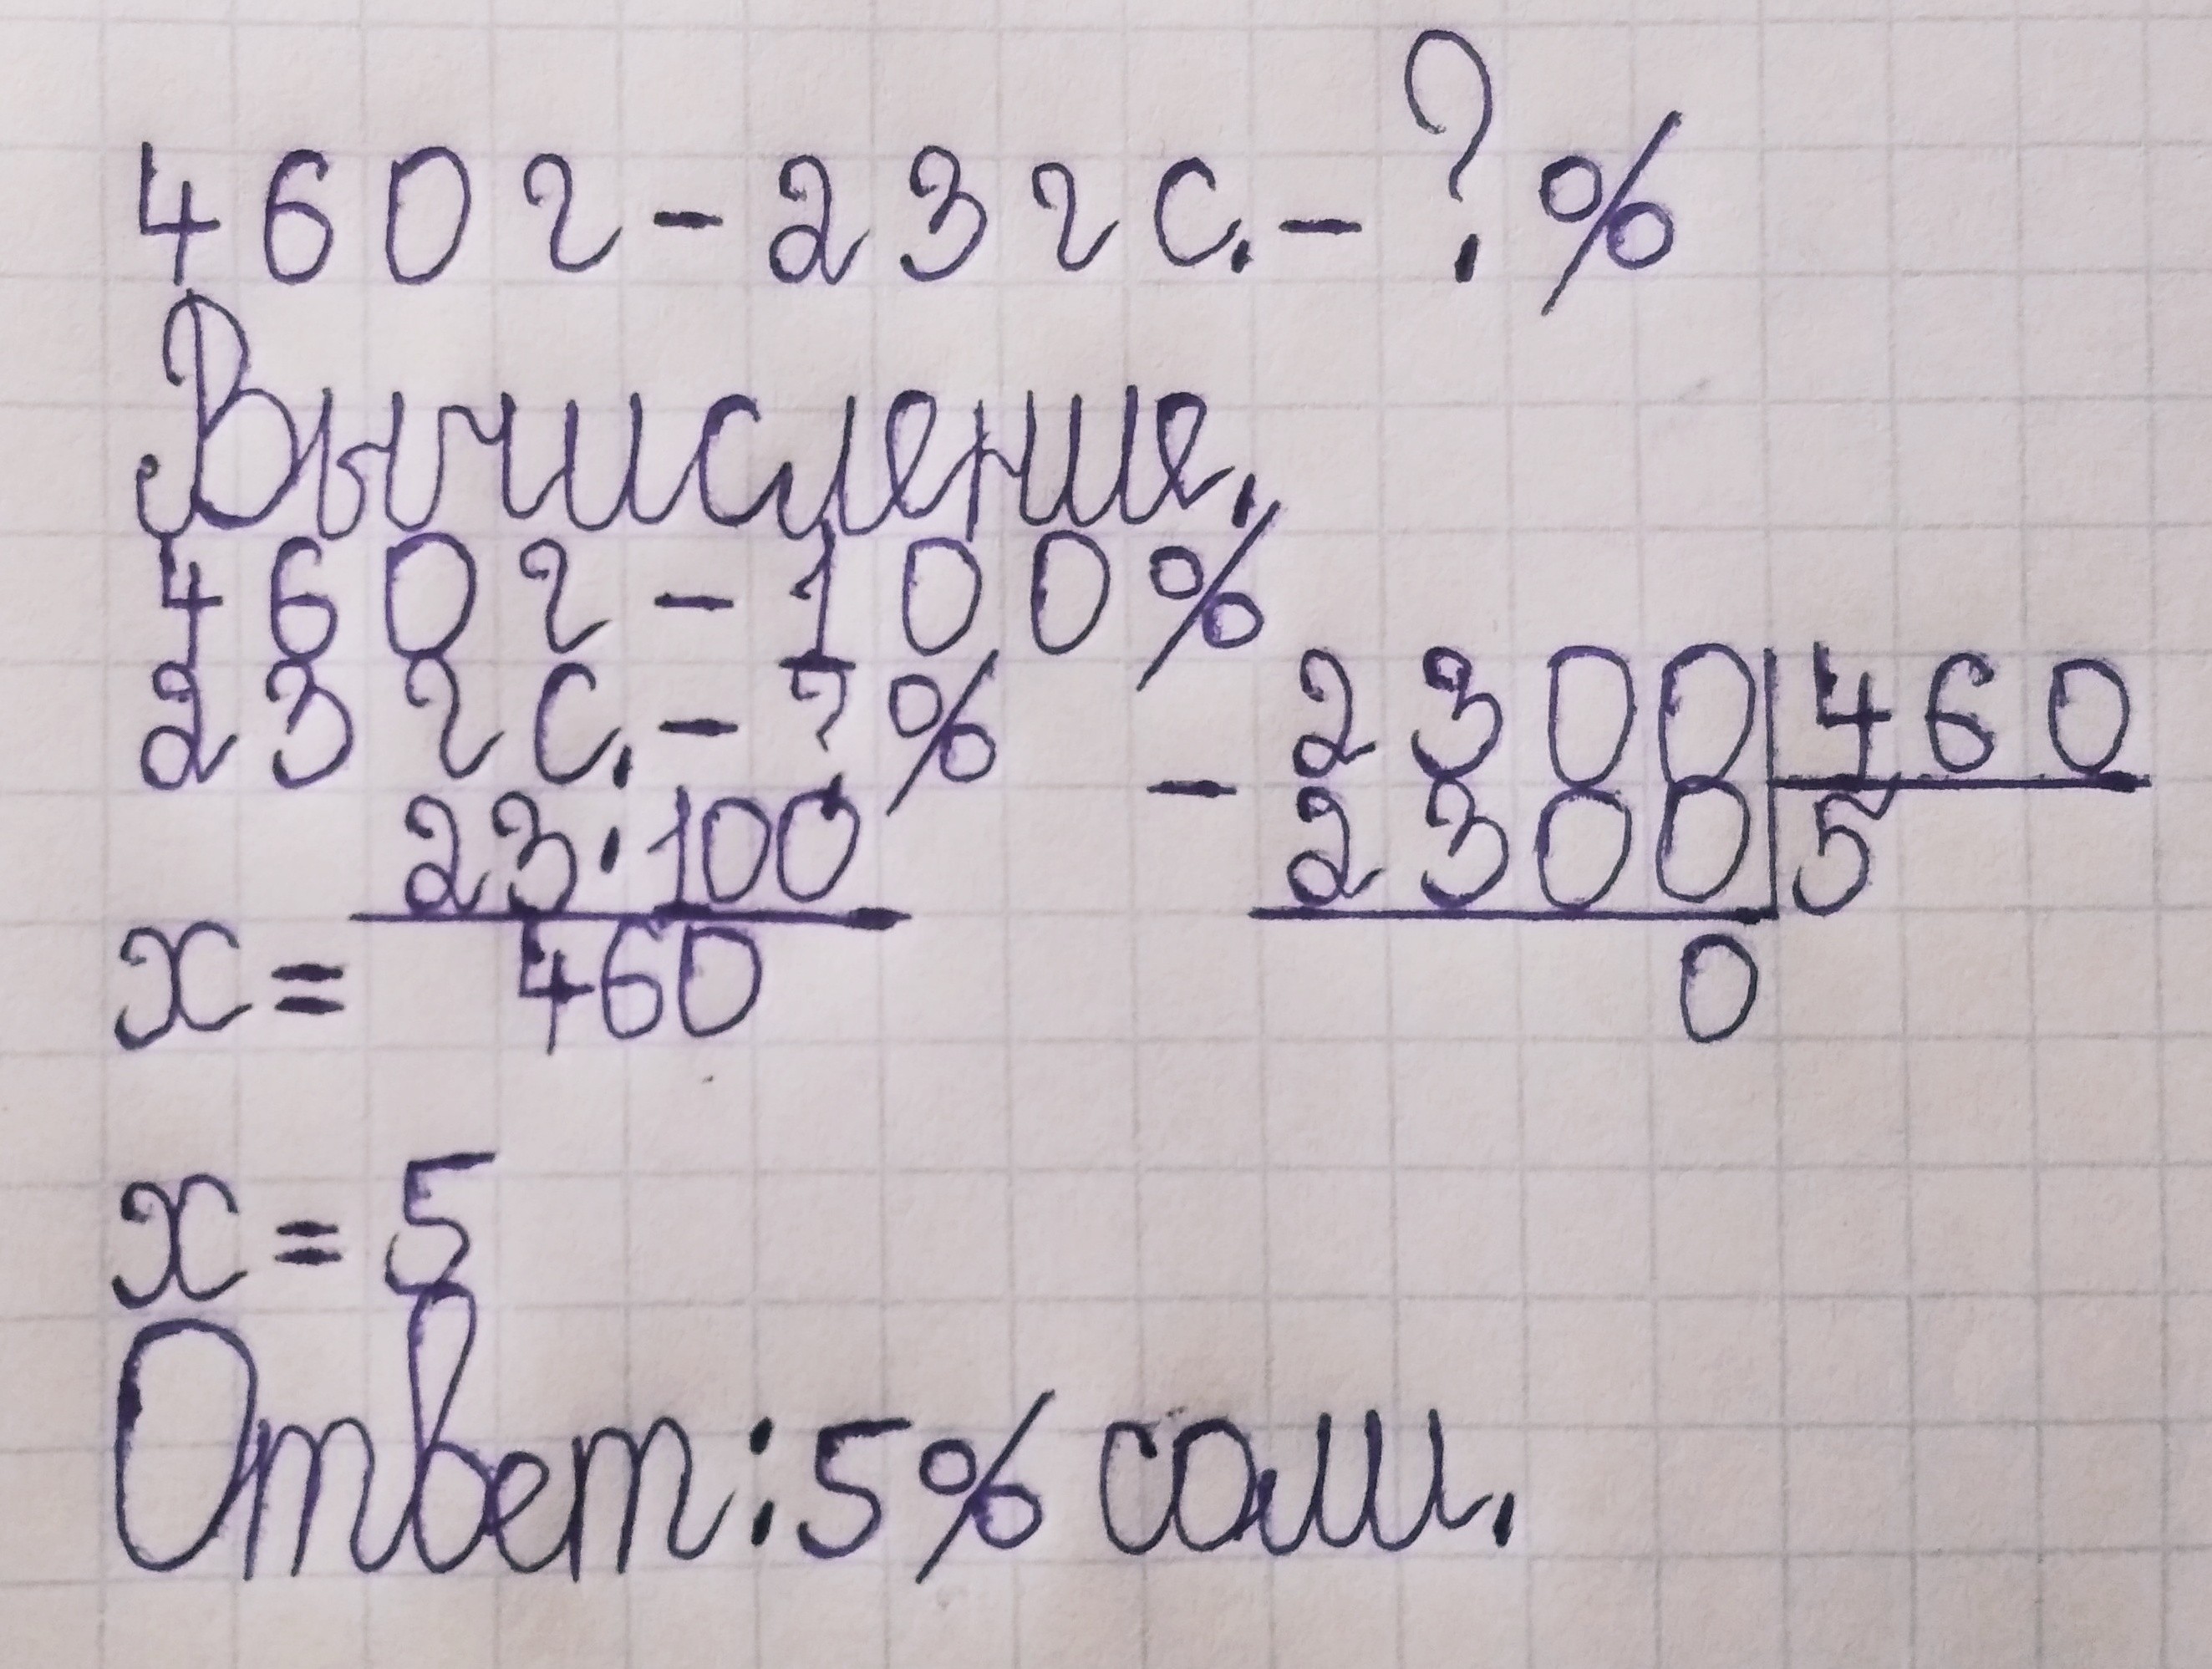 460г - 23г с. - ? %
Вычисление.
460г - 100%
23г с. - ? %
23·100
x =
460
- 2300 | 460
2300 | 5
0
x = 5
Ответ: 5% соли.